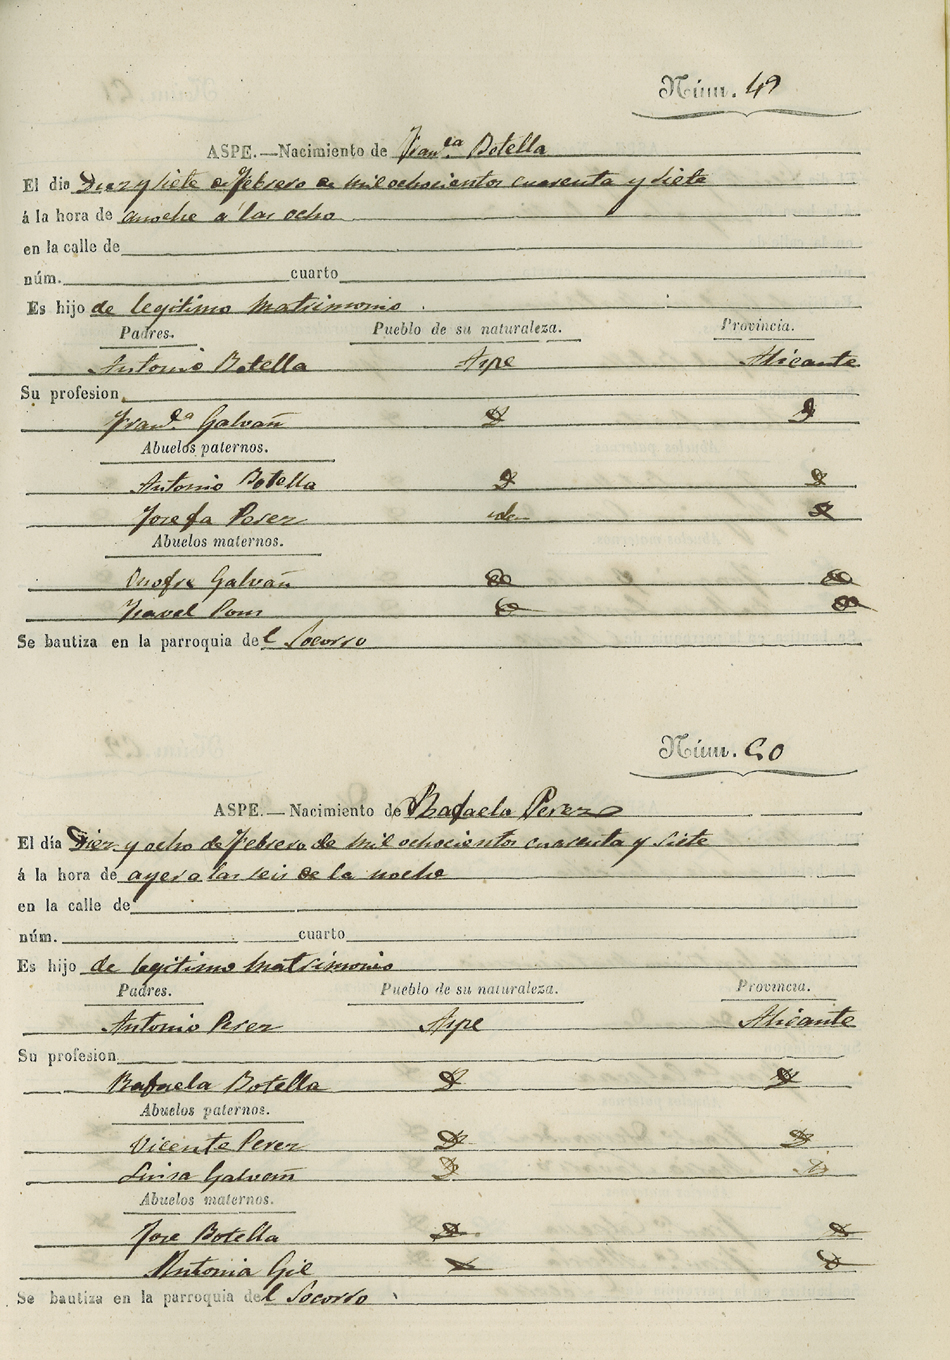 Núm. 49
ASPE.—Nacimiento de Fran.ca Botella
El día Diez y siete de Febrero de mil ochocientos cuarenta y siete
á la hora de anoche a las ocho
en la calle de
núm. cuarto
Es hijo de legitimo Matrimonio
Padres. Pueblo de su naturaleza. Provincia.
Antonio Botella Aspe Alicante
Su profesion
Galvañ
Abuelos paternos.
Antonio Botella
Josefa Perez
Abuelos maternos.
Onofre Galvañ
Se bautiza en la parroquia del Socorro
Núm. 50
ASPE.—Nacimiento de Rafaela Perez
El día Diez y ocho de Febrero de mil ochocientos cuarenta y siete
á la hora de ayer a las seis de la noche
en la calle de
núm. cuarto
Es hijo de legitimo Matrimonio
Padres. Pueblo de su naturaleza. Provincia.
Antonio Perez Aspe Alicante
Su profesion
Rafaela Botella
Abuelos paternos.
Vicente Perez
Luisa Galvañ
Abuelos maternos.
Jose Botella
Antonia Gil
Se bautiza en la parroquia del Socorro